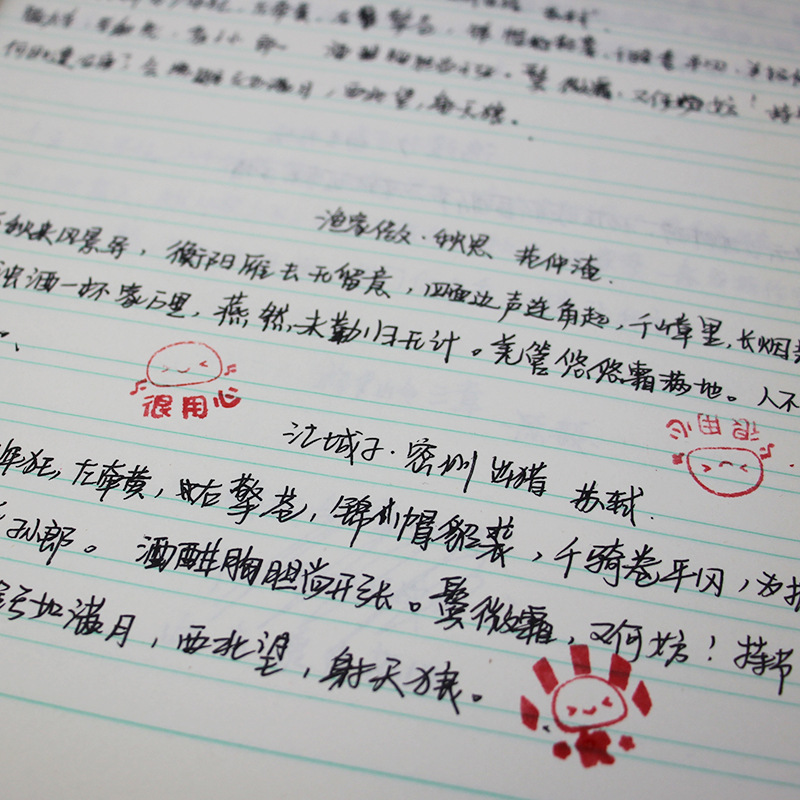 满月，西北望，射天狼。
渔家傲·秋思 范仲淹
秋来风景异，衡阳雁去无留意，四面边声连角起，千嶂里，长烟
浊酒一杯家万里，燕然未勤归无计。羌管悠悠霜满地。人不
很用心
很用心
江城子·密州出猎 苏轼
年狂，左牵黄，右擎苍，锦帽貂裘，千骑卷平冈，为报
孙郎。酒酣胸胆尚开张。鬓微霜，又何妨！持节
如满月，西北望，射天狼。